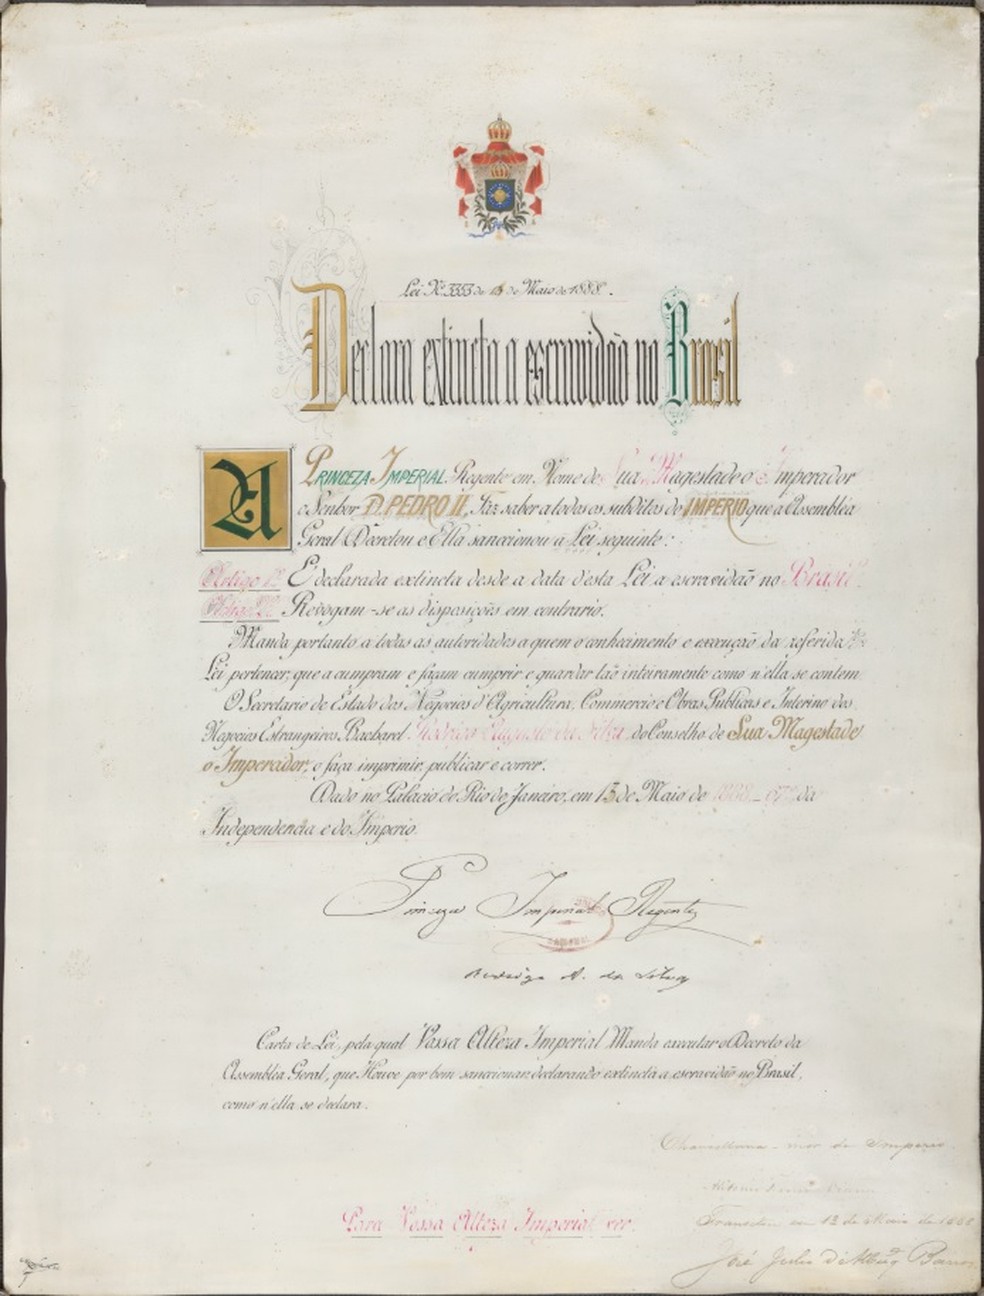 Lei Nº 3353 de 13 de Maio de 1888.
Declara extincta a escravidão no Brasil
A PRINCEZA IMPERIAL. Regente em Nome de Sua Magestade o Imperador
o Senhor D. PEDRO II, Faz saber a todos os subditos do IMPERIO que a Assembléa
Geral Decretou e Ella sanccionou a Lei seguinte:
Artigo 1º É declarada extincta desde a data d'esta Lei a escravidão no Brasil.
Artigo 2º Revogam-se as disposições em contrario.
Manda portanto a todas as autoridades a quem o conhecimento e execução da referida
Lei pertencer, que a cumpram e façam cumprir e guardar tão inteiramente como n'ella se contem
O Secretario de Estado dos Negocios d'Agricultura, Commercio e Obras Publicas e Interino dos
Negocios Estrangeiros, Bacharel Rodrigo Augusto da Silva, do Conselho de Sua Magestade
o Imperador, o faça imprimir, publicar e correr.
Dado no Palacio do Rio de Janeiro, em 13 de Maio de 1888 - 67º da
Independencia e do Imperio.
Princeza Imperial Regente
Rodrigo A. da Silva
Carta de Lei, pela qual Vossa Alteza Imperial Manda executar o Decreto da
Assembléa Geral, que Houve por bem sanccionar, declarando extincta a escravidão no Brasil,
como n'ella se declara.
Chancellaria-mór do Imperio
Transitou em 13 de Maio de 1888
Para Vossa Alteza Imperial ver.
José Julio d'Albuqᵉ Barros